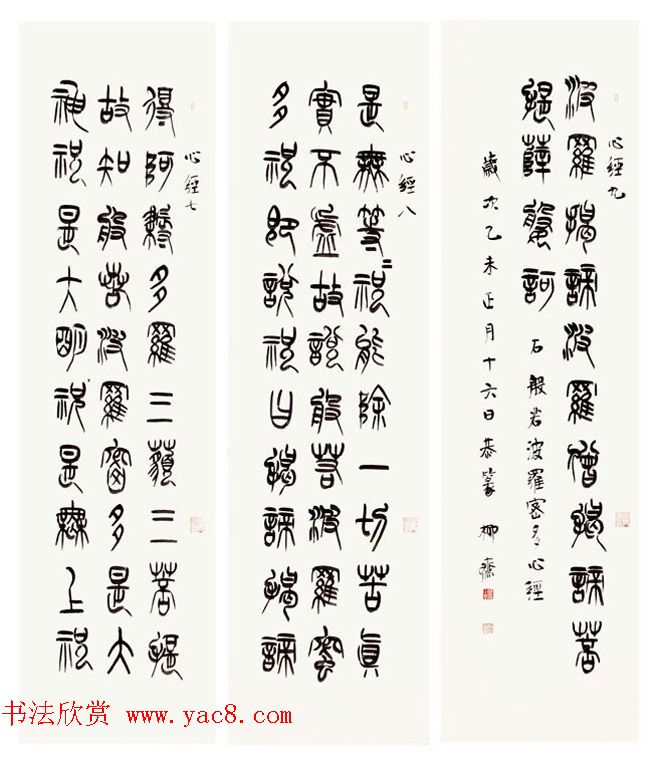 心經七
得阿耨多羅三藐三菩提
故知般若波羅蜜多是大
神祝是大明祝是無上祝
心經八
是無等〻祝能除一切苦真
實不虛故說般若波羅蜜
多祝即說祝曰揭諦揭諦
心經九
波羅揭諦波羅僧揭諦菩
提薩婆訶
右般若波羅密多心經
歲次乙未正月十六日恭篆 柳齋
书法欣赏 www.yac8.com